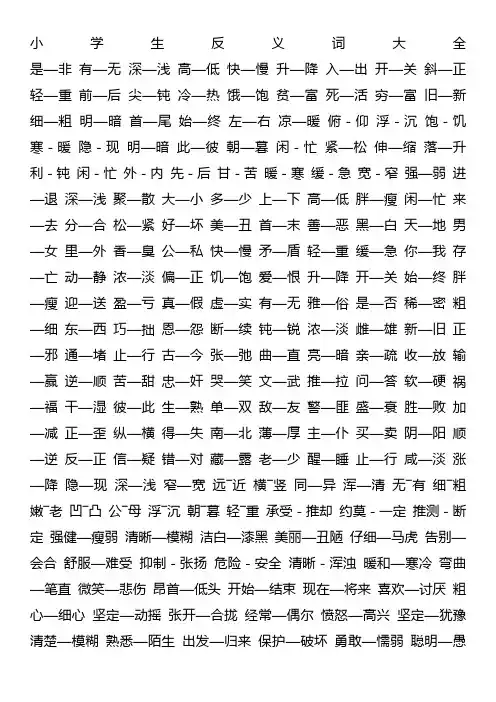 小学生反义词大全
是—非 有—无 深—浅 高—低 快—慢 升—降 入—出 开—关 斜—正
轻—重 前—后 尖—钝 冷—热 饿—饱 贫—富 死—活 穷—富 旧—新
细—粗 明—暗 首—尾 始—终 左—右 凉—暖 俯-仰 浮-沉 饱-饥
寒-暖 隐-现 明—暗 此—彼 朝—暮 闲-忙 紧—松 伸—缩 落—升
利-钝 闲-忙 外-内 先-后 甘-苦 暖-寒 缓-急 宽-窄 强—弱 进
—退 深—浅 聚—散 大—小 多—少 上—下 高—低 胖—瘦 闲—忙 来
—去 分—合 松—紧 好—坏 美—丑 首—末 善—恶 黑—白 天—地 男
—女 里—外 香—臭 公—私 快—慢 矛—盾 轻—重 缓—急 你—我 存
—亡 动—静 浓—淡 偏—正 饥—饱 爱—恨 升—降 开—关 始—终 胖
—瘦 迎—送 盈—亏 真—假 虚—实 有—无 雅—俗 是—否 稀—密 粗
—细 东—西 巧—拙 恩—怨 断—续 钝—锐 浓—淡 雌—雄 新—旧 正
—邪 通—堵 止—行 古—今 张—弛 曲—直 亮—暗 亲—疏 收—放 输
—赢 逆—顺 苦—甜 忠—奸 哭—笑 文—武 推—拉 问—答 软—硬 祸
—福 干—湿 彼—此 生—熟 单—双 敌—友 警—匪 盛—衰 胜—败 加
—减 正—歪 纵—横 得—失 南—北 薄—厚 主—仆 买—卖 阴—阳 顺
—逆 反—正 信—疑 错—对 藏—露 老—少 醒—睡 止—行 咸—淡 涨
—降 隐—现 深—浅 窄—宽 远¯近 横¯竖 同—异 浑—清 无¯有 细¯粗
嫩¯老 凹¯凸 公¯母 浮¯沉 朝¯暮 轻¯重 承受-推却 约莫-一定 推测-断
定 强健—瘦弱 清晰—模糊 洁白—漆黑 美丽—丑陋 仔细—马虎 告别—
会合 舒服—难受 抑制-张扬 危险-安全 清晰-浑浊 暖和—寒冷 弯曲
—笔直 微笑—悲伤 昂首—低头 开始—结束 现在—将来 喜欢—讨厌 粗
心—细心 坚定—动摇 张开—合拢 经常—偶尔 愤怒—高兴 坚定—犹豫
清楚—模糊 熟悉—陌生 出发—归来 保护—破坏 勇敢—懦弱 聪明—愚